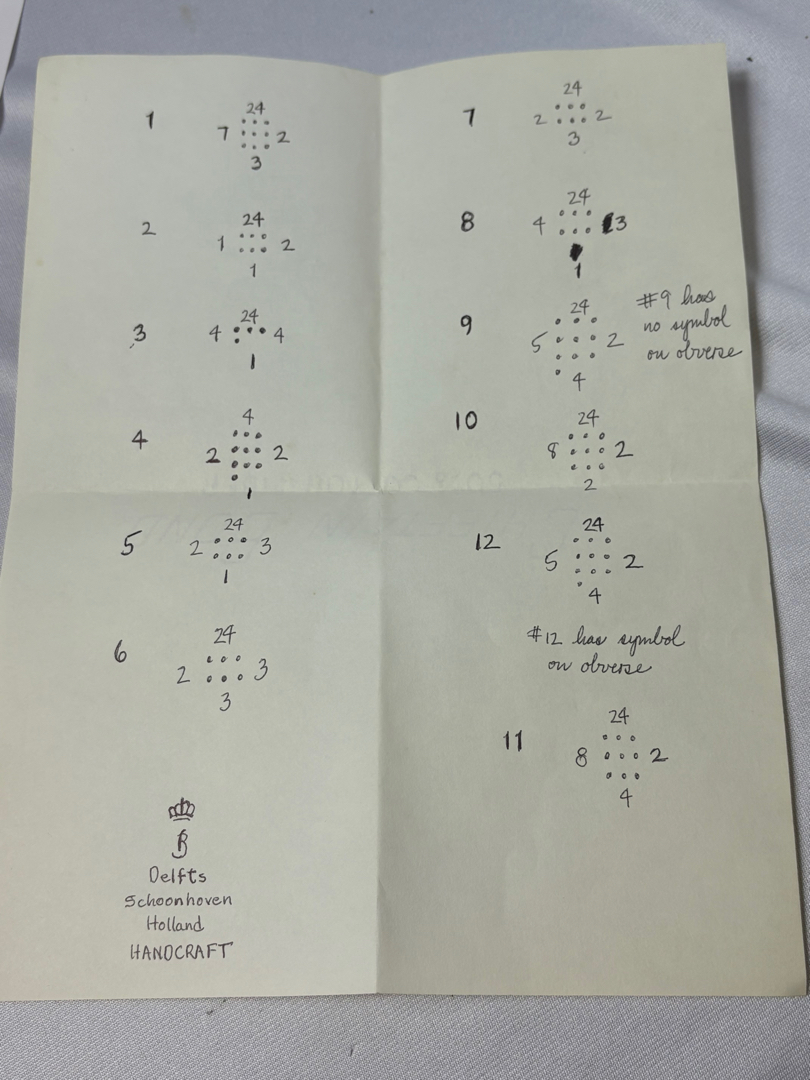 1
24
7 2
3
2
24
1 2
1
3
24
4 4
1
4
4
2 2
1
5
24
2 3
1
6
24
2 3
3
B
Delfts
Schoonhoven
Holland
HANDCRAFT
7
24
2 2
3
8
24
4 3
1
9
24
5 2
4
#9 has
no symbol
on obverse
10
24
8 2
2
12
24
5 2
4
#12 has symbol
on obverse
11
24
8 2
4